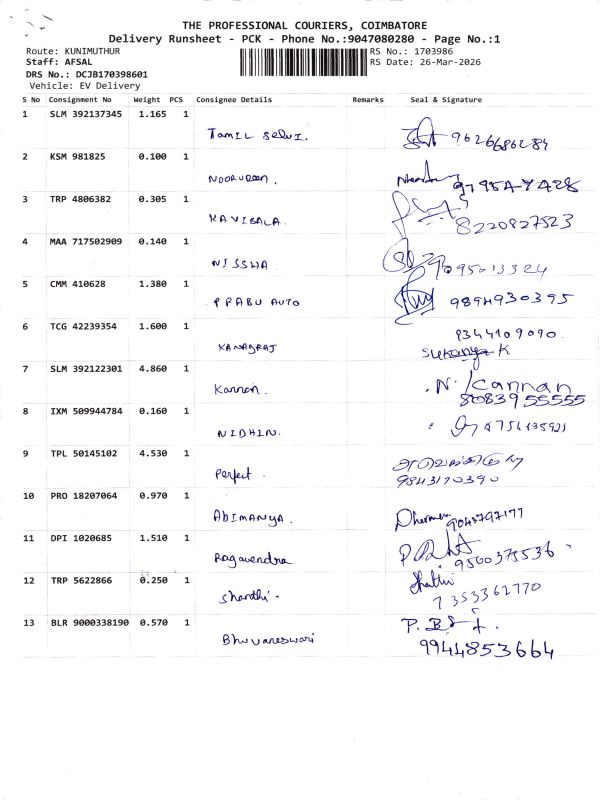 THE PROFESSIONAL COURIERS, COIMBATORE
Delivery Runsheet - PCK - Phone No.:9047080280 - Page No.:1
Route: KUNIMUTHUR RS No.: 1703986
Staff: AFSAL RS Date: 26-Mar-2026
DRS No.: DCJB170398601
Vehicle: EV Delivery
S No Consignment No Weight PCS Consignee Details Remarks Seal & Signature
1 SLM 392137345 1.165 1
Tamil Selvi. 9626686284
2 KSM 981825 0.100 1
NOORUDEEN.
3 TRP 4806382 0.305 1
KAVIBALA. 8220827523
4 MAA 717502909 0.140 1
NISSHA
5 CMM 410628 1.380 1
PRABU AUTO 9894930395
6 TCG 42239354 1.600 1
9344109090.
KANAGRAJ Sukanya K
7 SLM 392122301 4.860 1
Kannan. N. Kannan
8083955555
8 IXM 509944784 0.160 1
NIDHIN.
9 TPL 50145102 4.530 1
Perfect.
9843170390
10 PRO 18207064 0.970 1
ABIMANYA.
11 DPI 1020685 1.510 1
Ragavendra 9500375536
12 TRP 5622866 0.250 1
Shanthi. Shathi
7353362770
13 BLR 9000338190 0.570 1
Bhuvaneswari P.B
9944853664